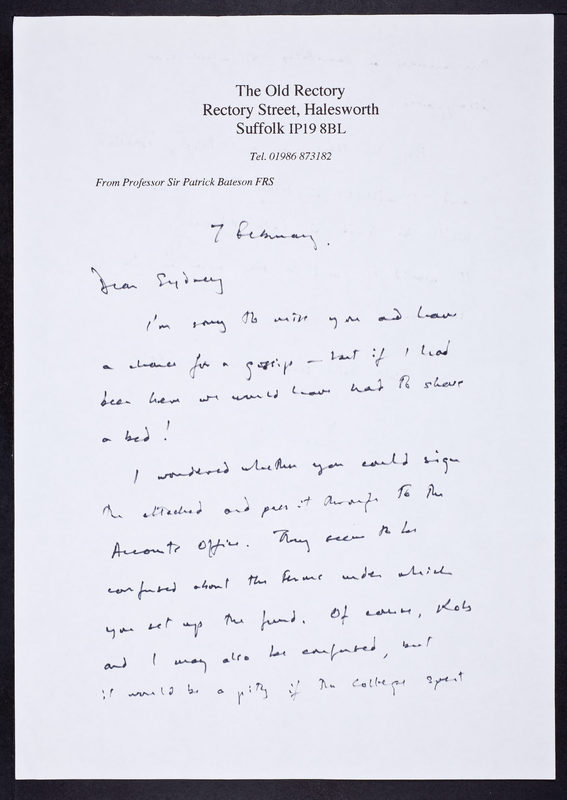 The Old Rectory
Rectory Street, Halesworth
Suffolk IP19 8BL
Tel. 01986 873182
From Professor Sir Patrick Bateson FRS
7 February.
Dear Sydney
I'm sorry to miss you and have
a chance for a gossip – but if I had
been here we would have had to share
a bed!
I wondered whether you could sign
the attached and pass it through to the
Accounts Office. They seem to be
confused about the terms under which
you set up the fund. Of course,
and I may also be confused, but
it would be a pity if the College spent